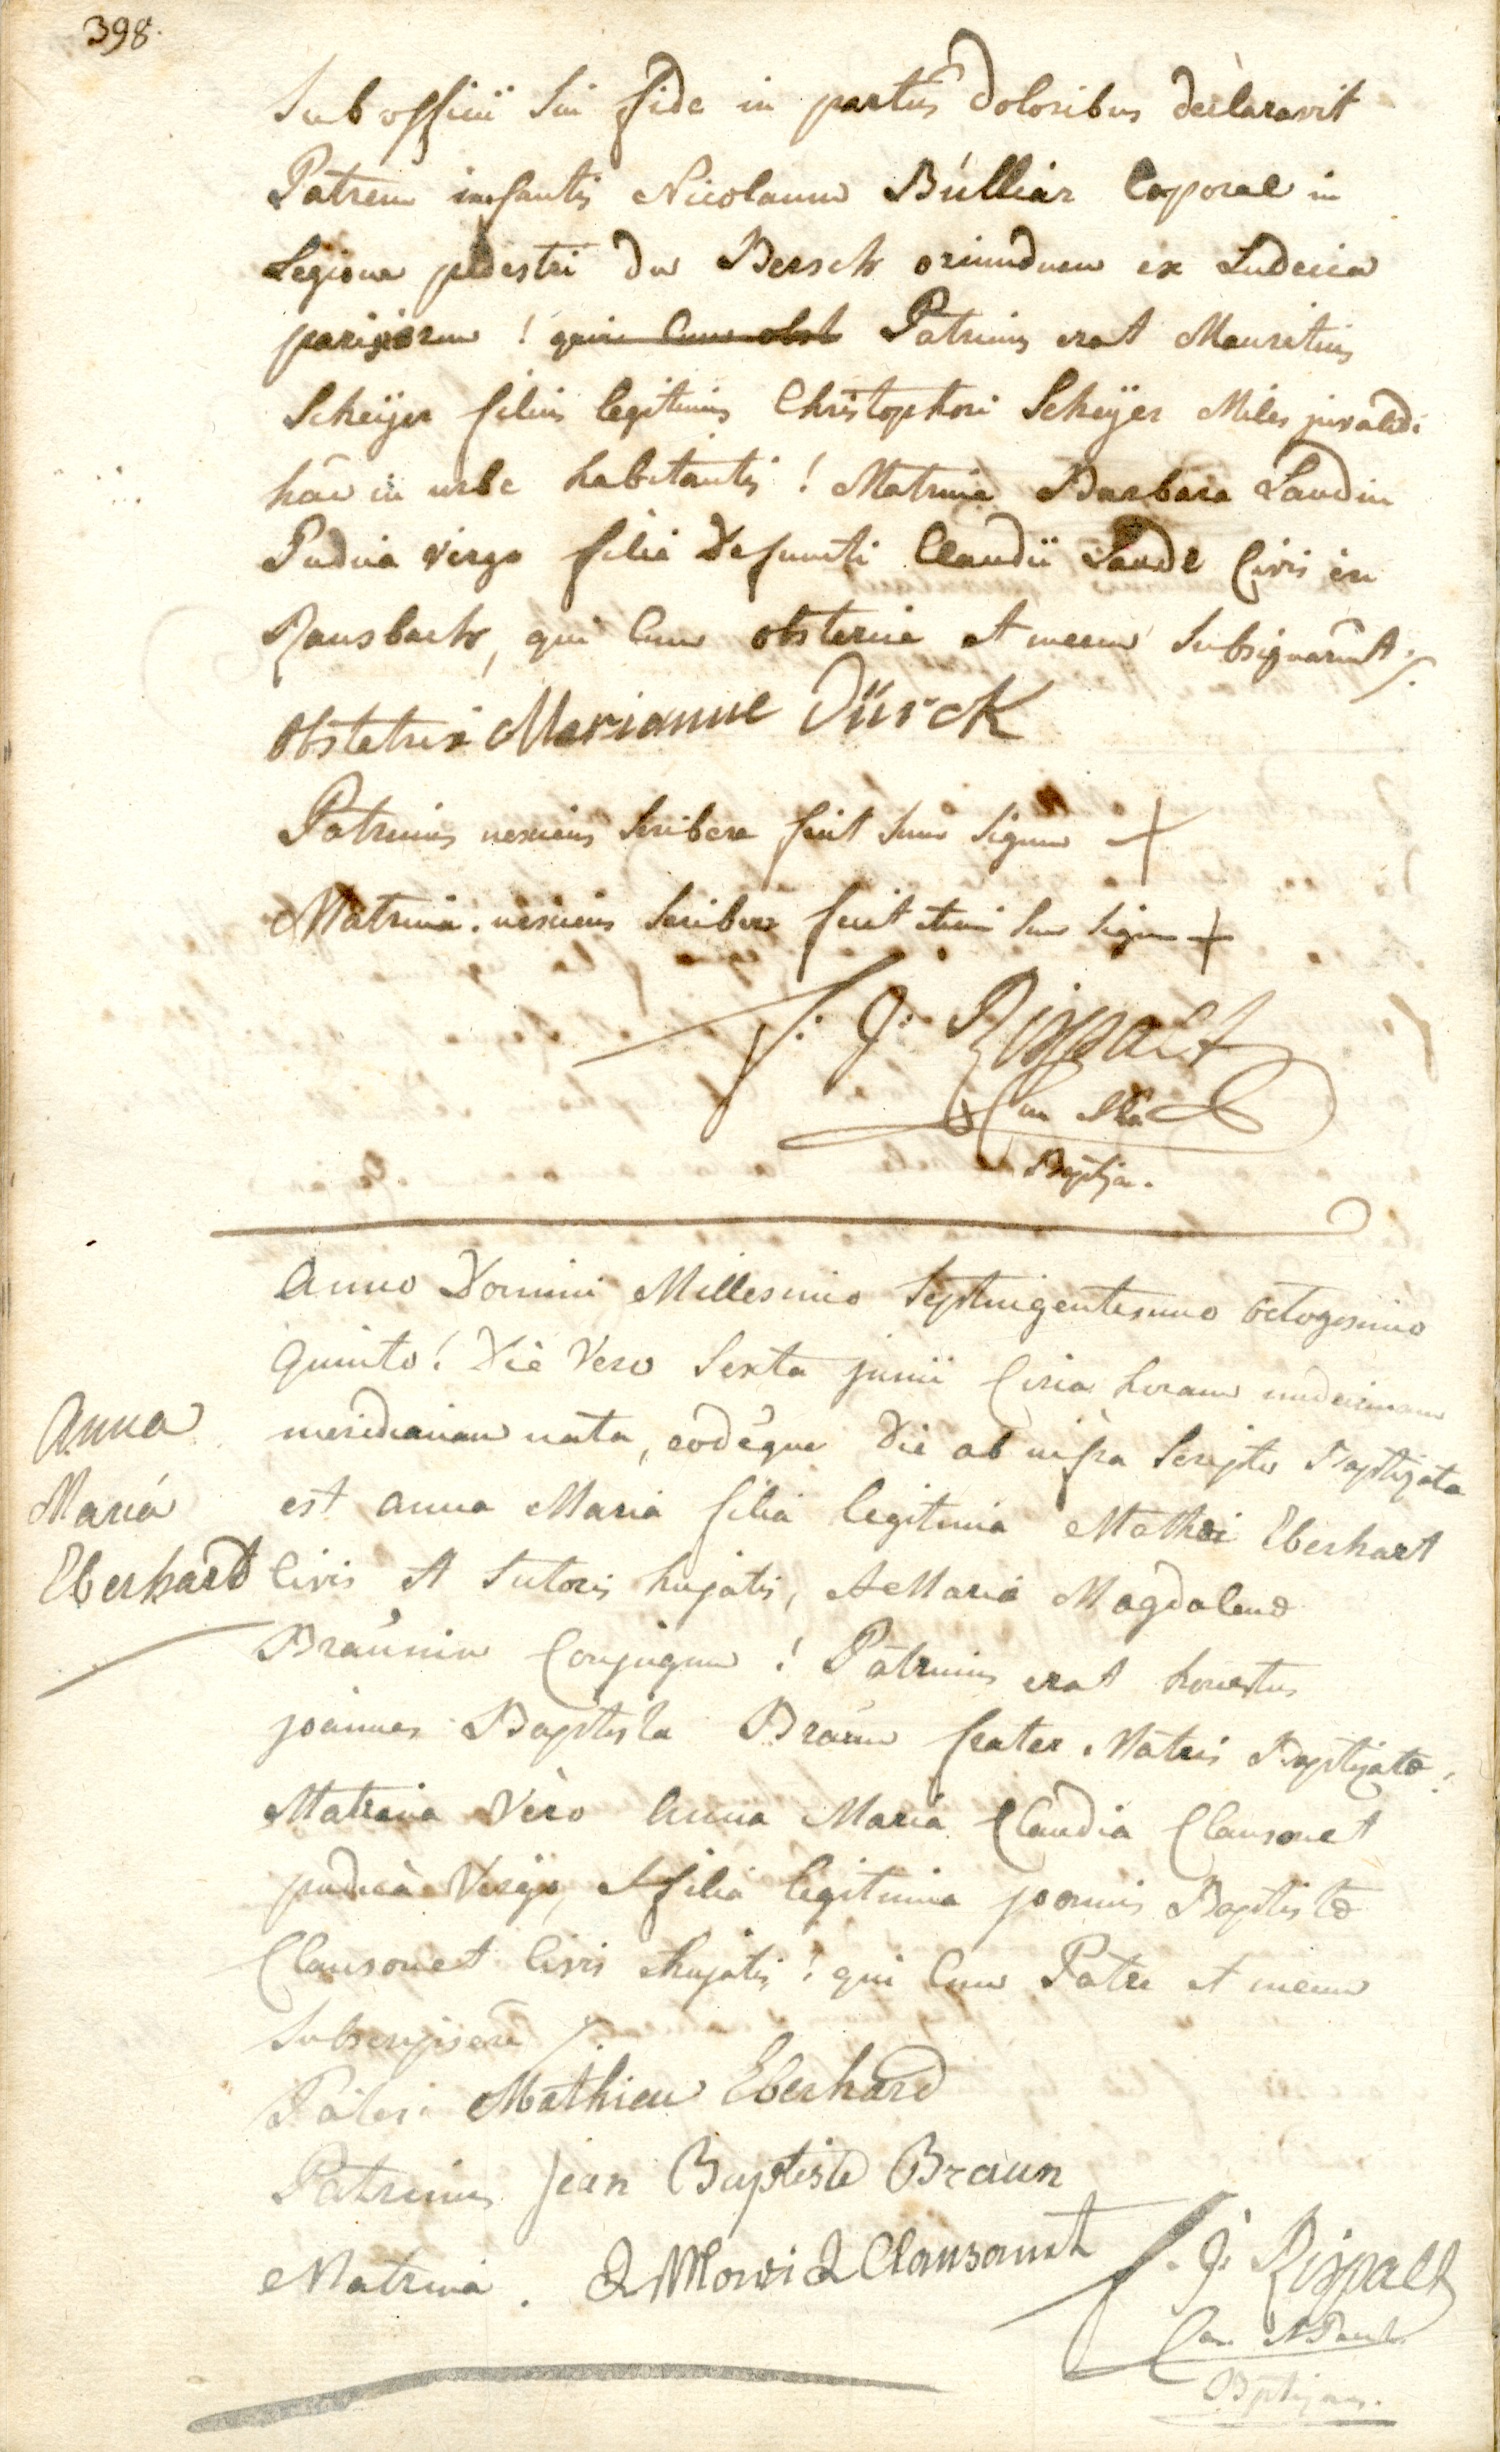 398.
Sub officii sui fide in partûs doloribus declaravit
Patrem infantis Nicolaum Búlliar Caporal in
Legione pedestri de Bersch oriundum ex
! quin cum obst Patrinus erat Mauritius
Scheÿer filius legitimus Christophori Scheÿer Miles
hâc in urbe habitantis ! Matrina Barbara Laudin
Pudica virgo filia Defuncti Claudii Laude Civis in
Ransbach, qui Cum obstetrice et mecum Subsignarunt ./.
Obstetrix Marianne Dürck
Patrinus nesciens scribere fecit suum signum +
Matrina nesciens scribere fecit etiam suum signum +
F. J. Rispalt
Can
Baptizans.
Anno Domini Millesimo Septuigentesimo octogesimo
Quinto! Die Vero Sexta junii Circa horam undecimam
meridianam nata, eodêque Die ab infra Scripto Baptizata
est anna Maria filia legitima Mathei Eberhart
Civis et Sutoris hujatis, et Maria Magdalenæ
Braúnin Conjugum ! Patrinus erat honestus
joannes Baptista Braún frater Matris Baptizatæ !
Matrina Vèro Anna Maria Claudia Clausonet
pudica Virgo, et filia legitima joannis Baptistæ
Clausonet Civis hujatis ! qui Cum Patre et mecum
Subscripsere ./.
Anna
Maria
Eberhard
Pater. Mathieu Eberhard
Patrinus Jean Baptiste Braun
Matrina. A Mari A Clausonet
F. J. Rispalt
Can
Baptizans.